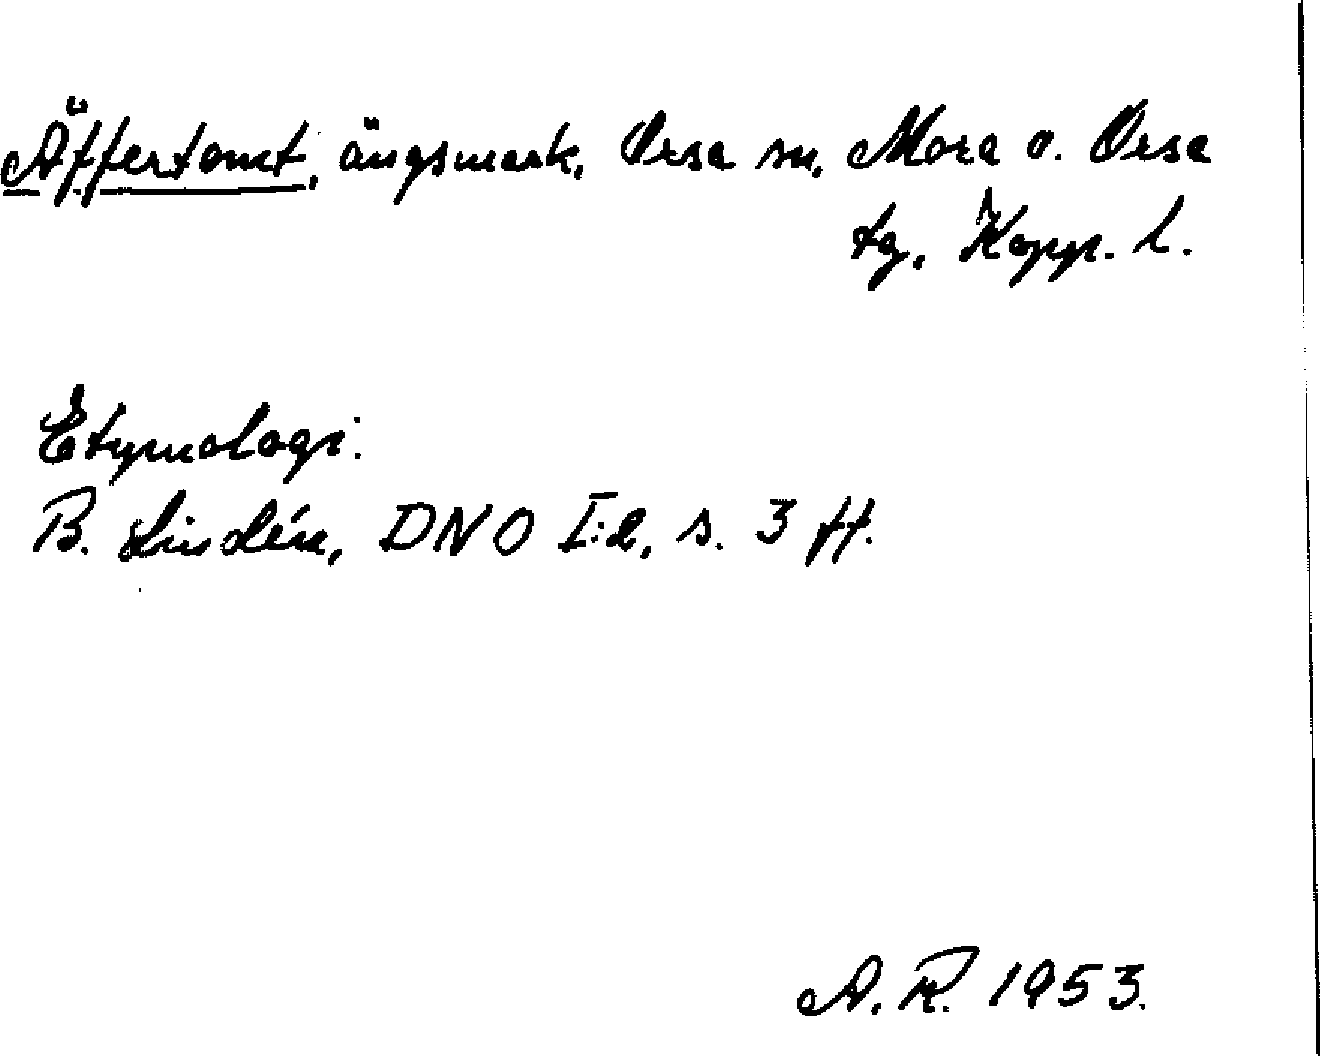 Äffertomt, ängsmark, Orsa sn, Mora o. Orsa
tg, Kopp. l.
Etymologi:
B. Lindén, DNO I:2, s. 3 ff.
A. R. 1953.